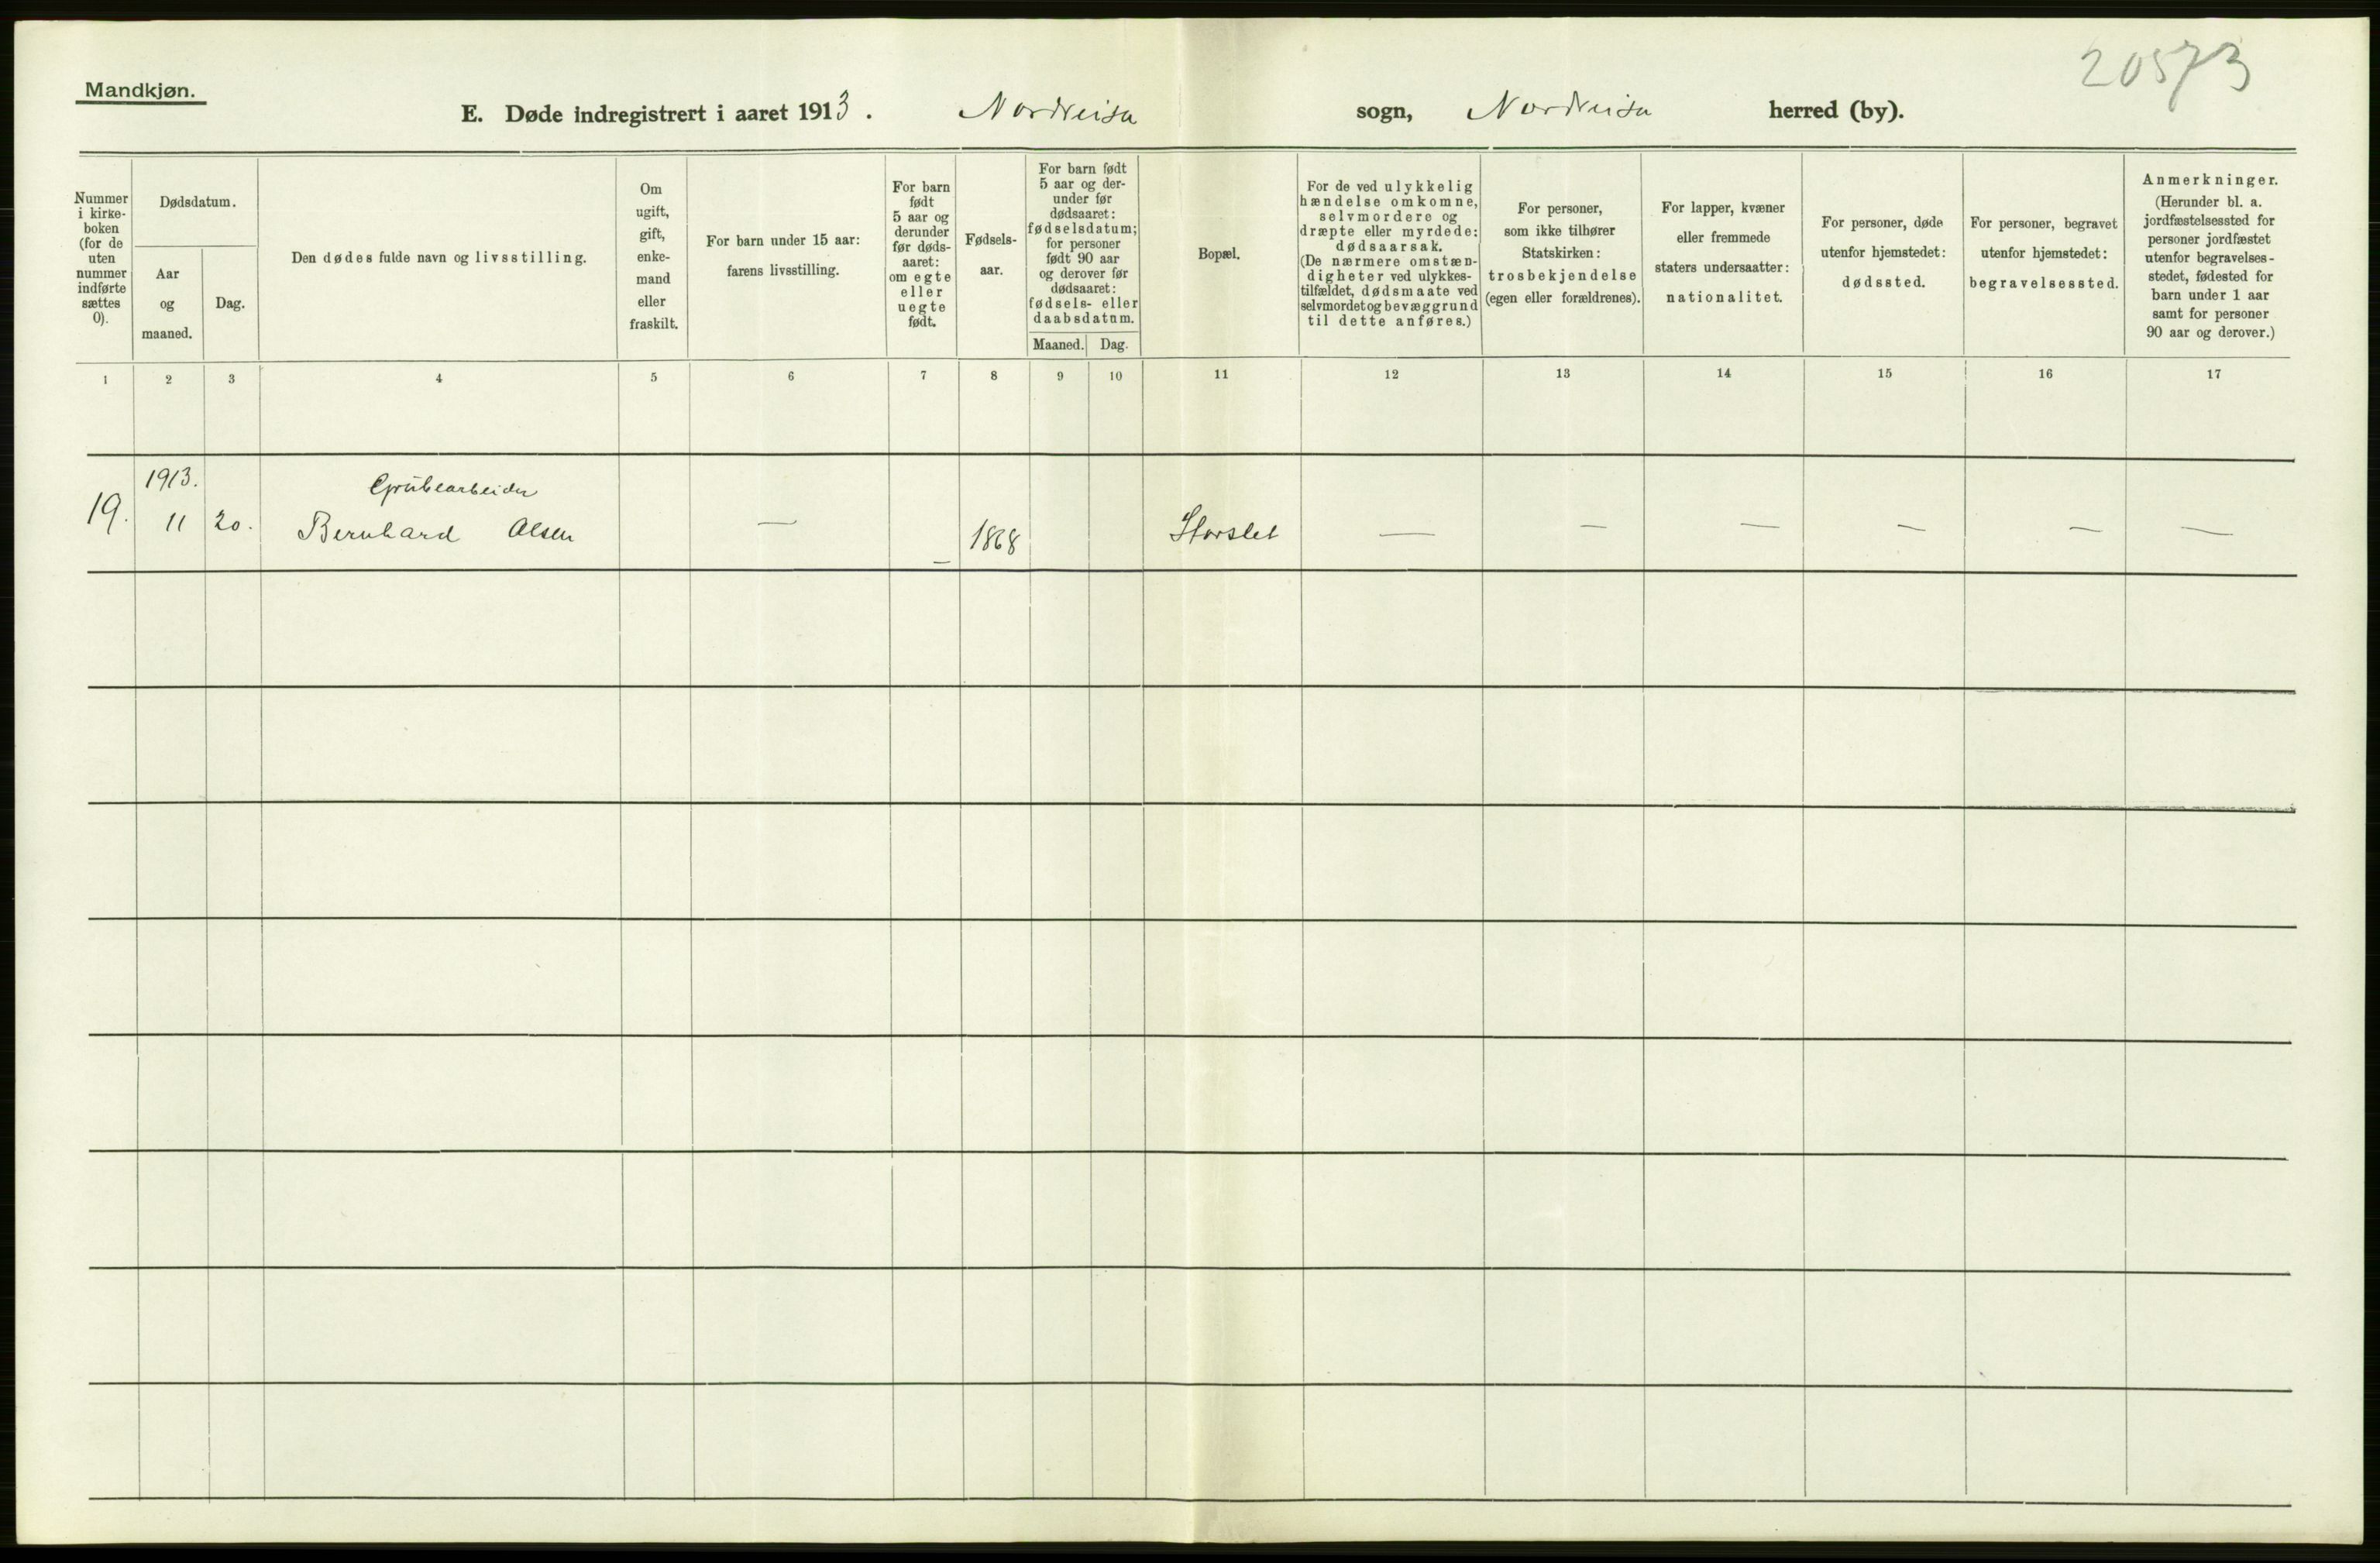 20573
Mandkjøn.
E. Døde indregistrert i aaret 1913. Nordreisa sogn, Nordreisa herred (by).
Nummer
i kirke-
boken
(for de
uten
nummer
indførte
sættes
0).
Dødsdatum.
Aar
og
maaned.
Dag.
Den dødes fulde navn og livsstilling.
Om
ugift,
gift,
enke-
mand
eller
fraskilt.
For barn under 15 aar:
farens livsstilling.
For barn
født
5 aar og
derunder
før døds-
aaret:
om egte
eller
uegte
født.
Fødsels-
aar.
For barn født
5 aar og der-
under før
dødsaaret:
fødselsdatum;
for personer
født 90 aar
og derover før
dødsaaret:
fødsels- eller
daabsdatum.
Maaned. Dag.
Bopæl.
For de ved ulykkelig
hændelse omkomne,
selvmordere og
dræpte eller myrdede:
dødsaarsak.
(De nærmere omstæn-
digheter ved ulykkes-
tilfældet, dødsmaate ved
selvmordet og bevæggrund
til dette anføres.)
For personer,
som ikke tilhører
Statskirken:
trosbekjendelse
(egen eller forældrenes).
For lapper, kvæner
eller fremmede
staters undersaatter:
nationalitet.
For personer, døde
utenfor hjemstedet:
dødssted.
For personer, begravet
utenfor hjemstedet:
begravelsessted.
Anmerkninger.
(Herunder bl. a.
jordfæstelsessted for
personer jordfæstet
utenfor begravelses-
stedet, fødested for
barn under 1 aar
samt for personer
90 aar og derover.)
1 2 3 4 5 6 7 8 9 10 11 12 13 14 15 16 17
1913. Grubearbeider
19. 11 20. Bernhard Olsen — — 1868 Storslet — — — — — —